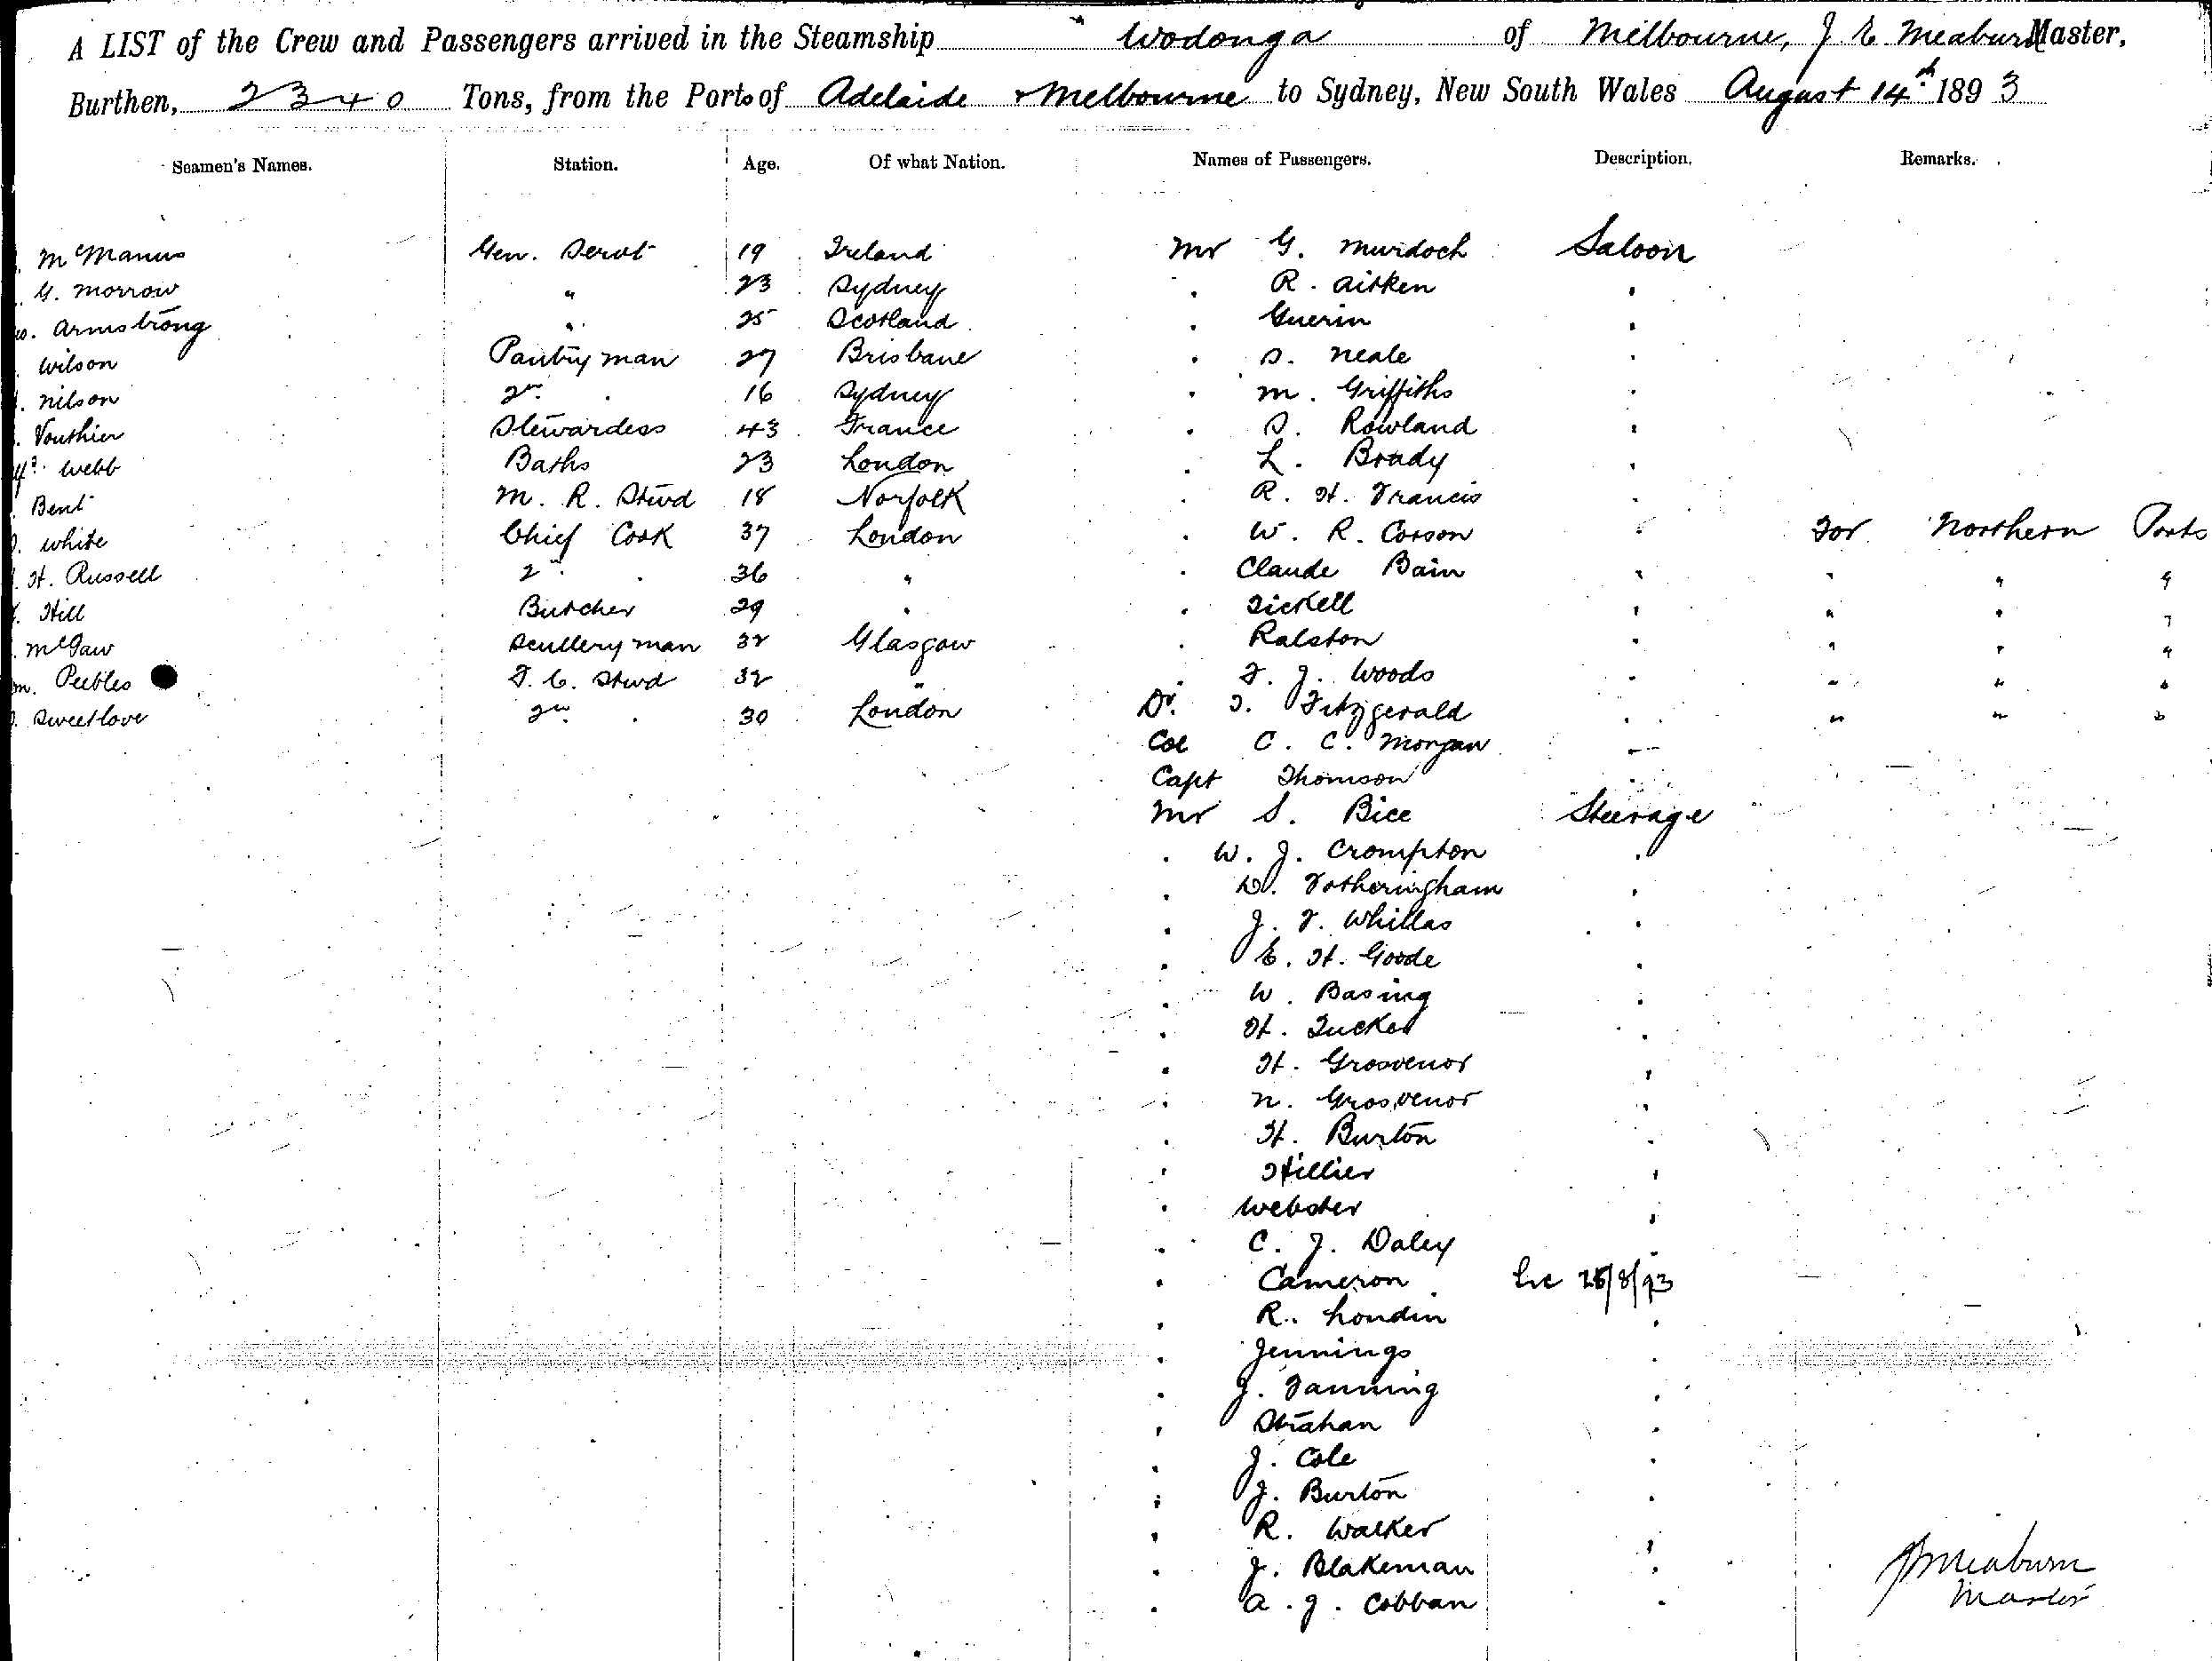 A LIST of the Crew and Passengers arrived in the Steamship Wodonga of Melbourne, J. E. Meaburn Master,
Burthen, 2340 Tons, from the Ports of Adelaide & Melbourne to Sydney, New South Wales August 14th 1893
Seamen's Names. Station. Age. Of what Nation. Names of Passengers. Description. Remarks.
McManus Gen. Servt 19 Ireland Mr G. Murdoch Saloon
G. Morrow " 23 Sydney " R. Aitken "
Armstrong " 25 Scotland " Guerin "
Wilson Pantryman 27 Brisbane " S. Neale "
Nilson 2nd " 16 Sydney " M. Griffiths "
Vouthier Stewardess 43 France " S. Rowland "
Webb Baths 23 London " L. Brady "
Bent M. R. Stwd 18 Norfolk " R. H. Francis "
White Chief Cook 37 London " W. R. Corson " For Northern Ports
H. Russell 2nd " 36 " " Claude Bain " " " "
Hill Butcher 29 " " Tickell " " " "
McGaw Scullery man 32 Glasgow " Ralston " " " "
Peebles F. C. Stwd 32 " " F. J. Woods " " " "
Sweetlove 2nd " 30 London Dr. T. Fitzgerald " " " "
Col C. C. Morgan "
Capt Thomson "
Mr S. Bice Steerage
" W. J. Crompton "
" D. Fotheringham "
" J. F. Whillas "
" E. H. Goode "
" W. Basing "
" H. Tucker "
" H. Grosvenor "
" N. Grosvenor "
" H. Burton "
" Hillier "
" Webster "
" C. J. Daley "
" Cameron 25/8/93
" R. Loudin "
" Jennings "
" J. Fanning "
" Strahan "
" J. Cole "
" J. Burton "
" R. Walker "
" J. Blakeman "
" A. J. Cobban "
J Meaburn
Master